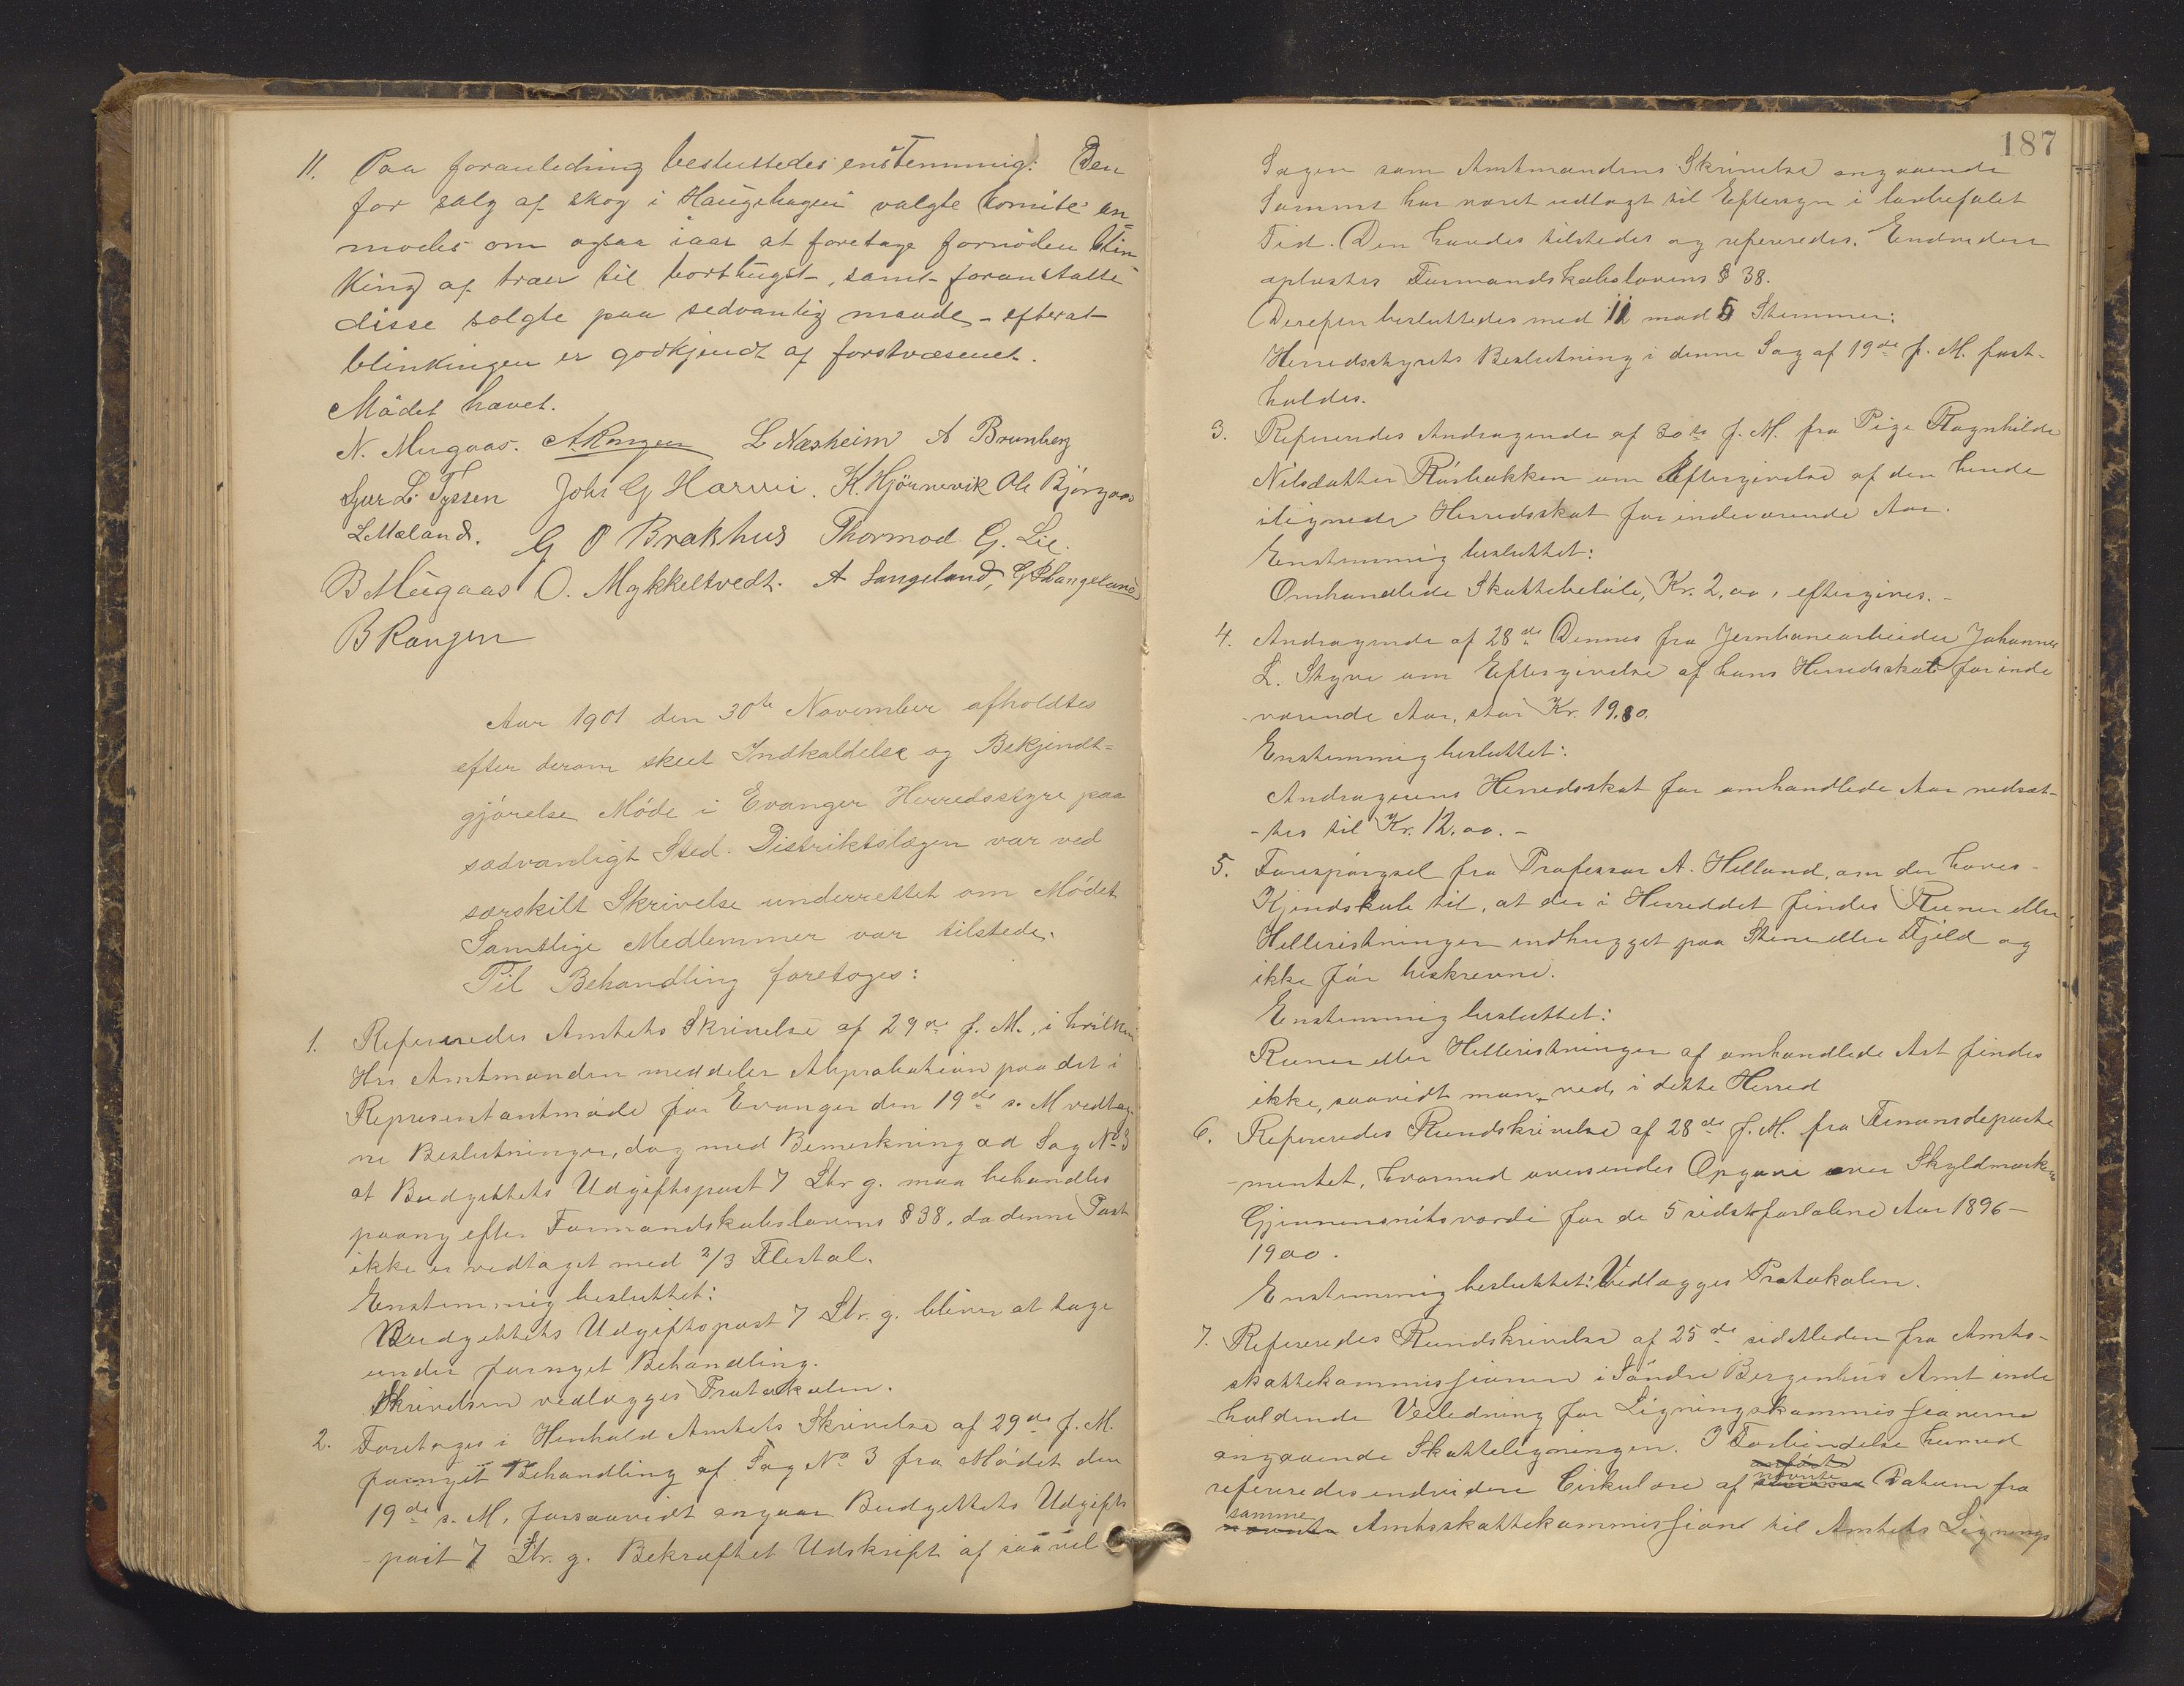 11. Paa foranledning besluttedes enstemmig: Den
for salg af skog i Haugehagen valgte komite an-
modes om ogsaa iaar at foretage fornöden blin-
king af træer til borthugst, samt foranstalte
disse solgte paa sedvanlig maade - efterat
blinkingen er godkjendt af forstvæsenet.
Mödet hævet.
N. Mugaas. A Rongen L Næsheim A Brunborg
Sjur L. Tyssen Johs G Horvei. K. Hjörnevik Ole Björgaas
L Mæland. G O Brakhus Thormod G. Lie.
B Mugaas O. Mykkeltvedt. A Langeland, G P Langeland
B Rongen
Aar 1901 den 30te November afholdtes
efter derom skeet Indkaldelse og Bekjendt=
gjörelse Möde i Evanger Herredsstyre paa
sædvanligt Sted. Distriktslægen var ved
særskilt Skrivelse underrettet om Mödet
Samtlige Medlemmer var tilstede.
Til Behandling foretoges:
1. Refereredes Amtets Skrivelse af 29de f. M., i hvilken
Hr Amtmanden meddeler Approbation paa det i
Representantmöde for Evanger den 19de s. M vedtag-
ne Beslutninger, dog med Bemerkning ad Sag No 3
at Budgettets Udgiftspost 7 Ltr g. maa behandles
paany efter Formandskabslovens § 38, da denne Post
ikke er vedtaget med 2/3 Flertal.
Enstemmig besluttet:
Budgettets Udgiftspost 7 Ltr. g. bliver at tage
under fornyet Behandling.
Skrivelsen vedlægges Protokolen.
2. Foretoges i Henhold Amtets Skrivelse af 29de f. M.
fornyet Behandling af Sag No 3 fra Mödet den
19de s. M, forsaavidt angaar Budgettets Udgifts
-post 7 Ltr. g. Bekræftet Udskrift af saavel
187
Sagen som Amtmandens Skrivelse angaaende
Samme har været udlagt til Eftersyn i lovbefalet
Tid. Den havdes tilstede og refereredes. Endvidere
oplæstes Formandskabslovens § 38.
Derefter besluttedes med 11 mod 5 Stemmer:
Herredsstyrets Beslutning i denne Sag af 19de f. M. fast-
holdes.
3. Refereredes Andragende af 30te f. M. fra Pige Ragnhilde
Nilsdatter Rösbakken om Eftergivelse af den hende
ilignede Herredsskat for indeværende Aar.
Enstemmig besluttet:
Omhandlede Skattebelöb, Kr. 2,00, eftergives. -
4. Andragende af 28de Dennes fra Jernbanearbeider Johannes
L. Skyve om Eftergivelse af hans Herredsskat for inde
-værende Aar, stor Kr. 19.80.
Enstemmig besluttet:
Andragerens Herredsskat for omhandlede Aar nedsæt-
-tes til Kr. 12.00. -
5. Forespörgsel fra Professor A. Helland, om der haves
Kjendskab til, at der i Herreddet findes Runer eller
Helleristninger indhugget paa Stene eller Fjeld og
ikke för beskrevne.
Enstemmig besluttet:
Runer eller Helleristninger af omhandlede Art findes
ikke, saavidt man ved, i dette Herred
6. Refereredes Rundskrivelse af 28de f. M. fra Finansdeparte
-mentet, hvormed oversendes Opgave over Skyldmarkens
Gjennemsnitsværdi for de 5 sidstforløbne Aar 1896-
1900.
Enstemmig besluttet: Vedlægges Protokolen.
7. Refereredes Rundskrivelse af 25de sidstleden fra Amts-
skattekommissionen i Söndre Bergenhus Amt inde
holdende Veiledning for Ligningskommissionerne
angaaende Skatteligningen. I Forbindelse hermed
refereredes endvidere Cirkulære af nævnte Datum fra
samme Amtsskattekommission til Amtets Lignings